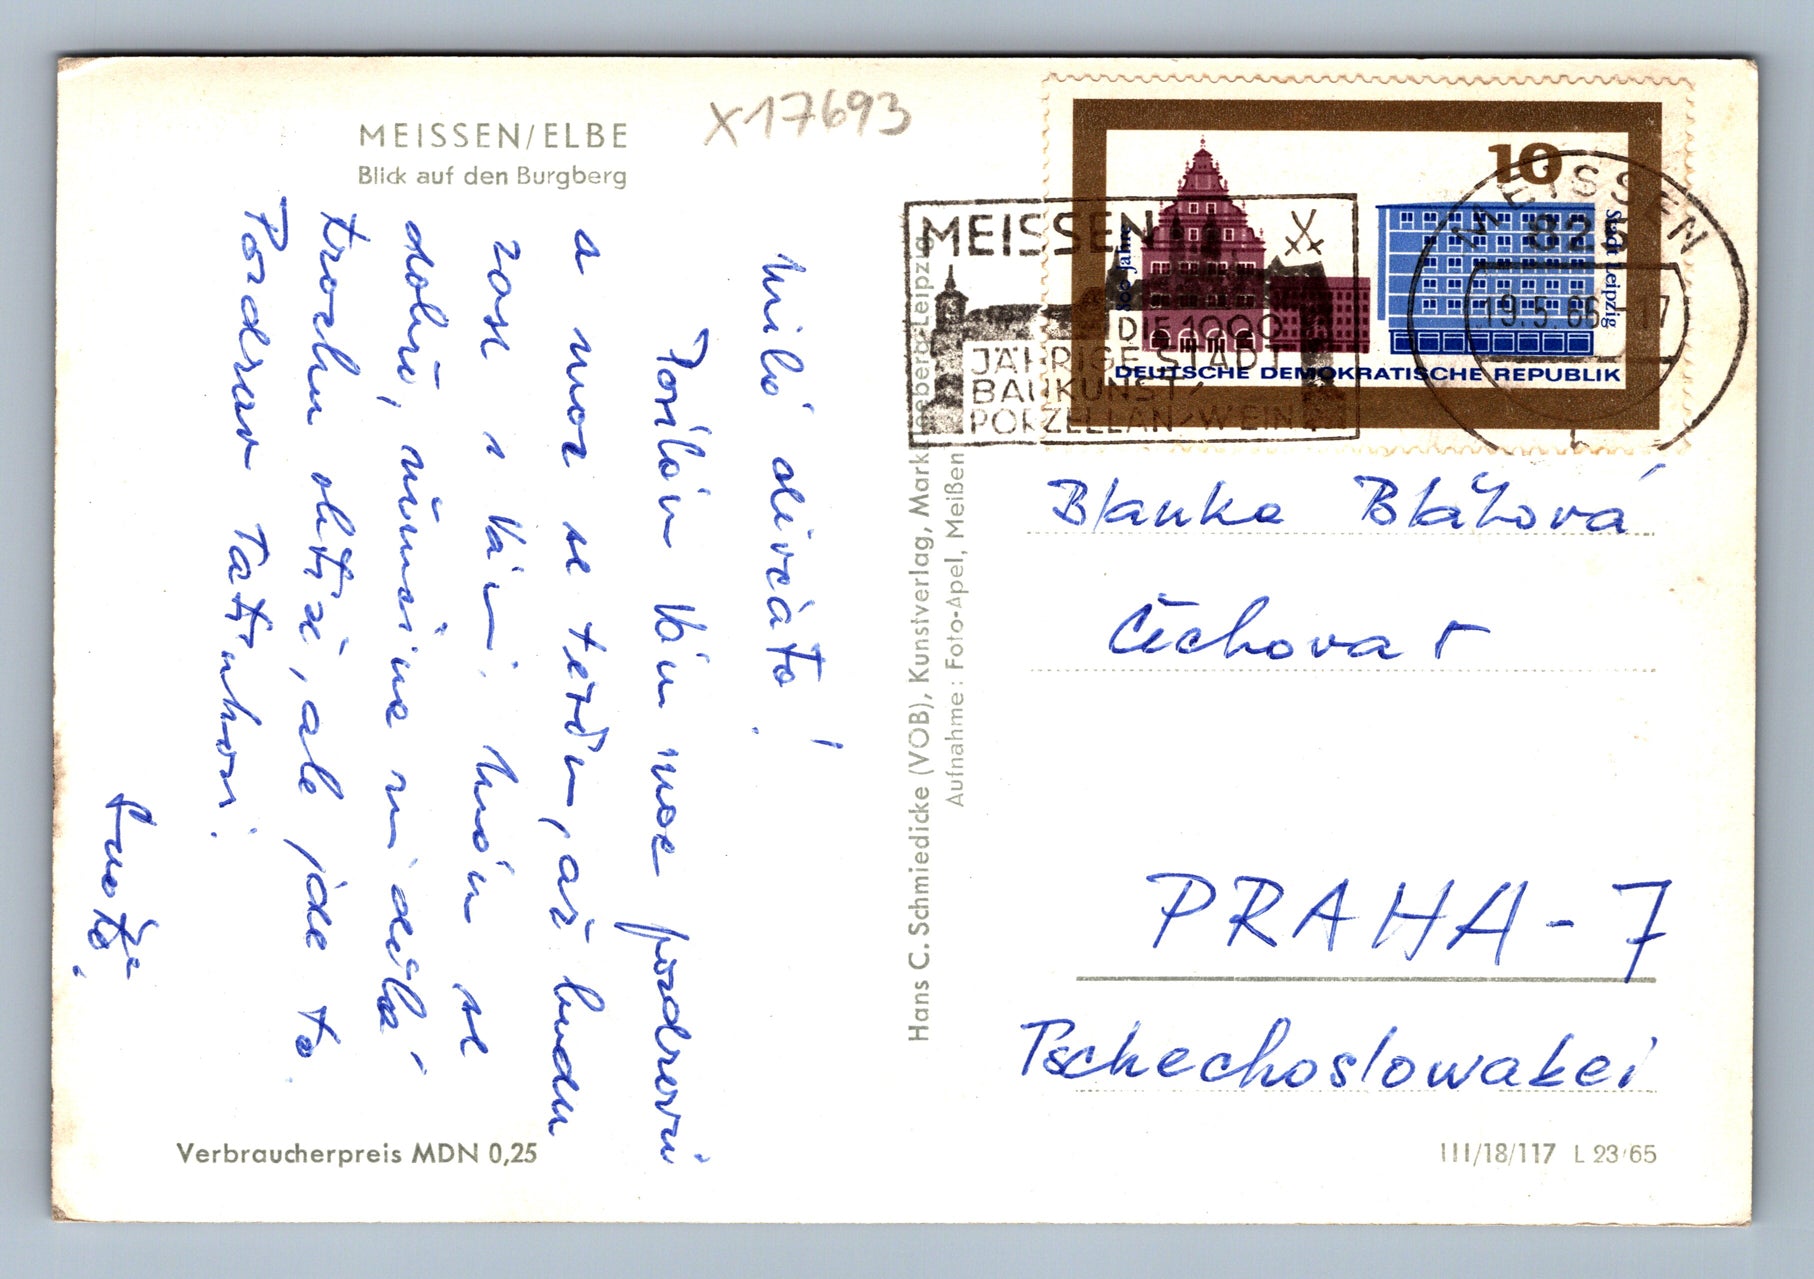 MEISSEN/ELBE
Blick auf den Burgberg
X17693
Milé děvčáto!
Posílám Vám moc pozdravů
a moc se těším, až budu
zase s Vámi. Mám se
dobře, zrní dělá
trochu obtíží, ale jde to.
Pozdrav Tatínkovi.
10
800 Jahre
Stadt Leipzig
DEUTSCHE DEMOKRATISCHE REPUBLIK
MEISSEN
DIE 1000
JÄHRIGE STADT
BAUKUNST/
PORZELLAN/WEIN
MEISSEN
825
19.5.66 17
b
Hans C. Schmiedicke (VOB), Kunstverlag, Markkleeberg-Leipzig
Aufnahme: Foto-Apel, Meißen
Blanka Bláhová
Čechova
PRAHA-7
Tschechoslowakei
Verbraucherpreis MDN 0,25
III/18/117 L 23/65